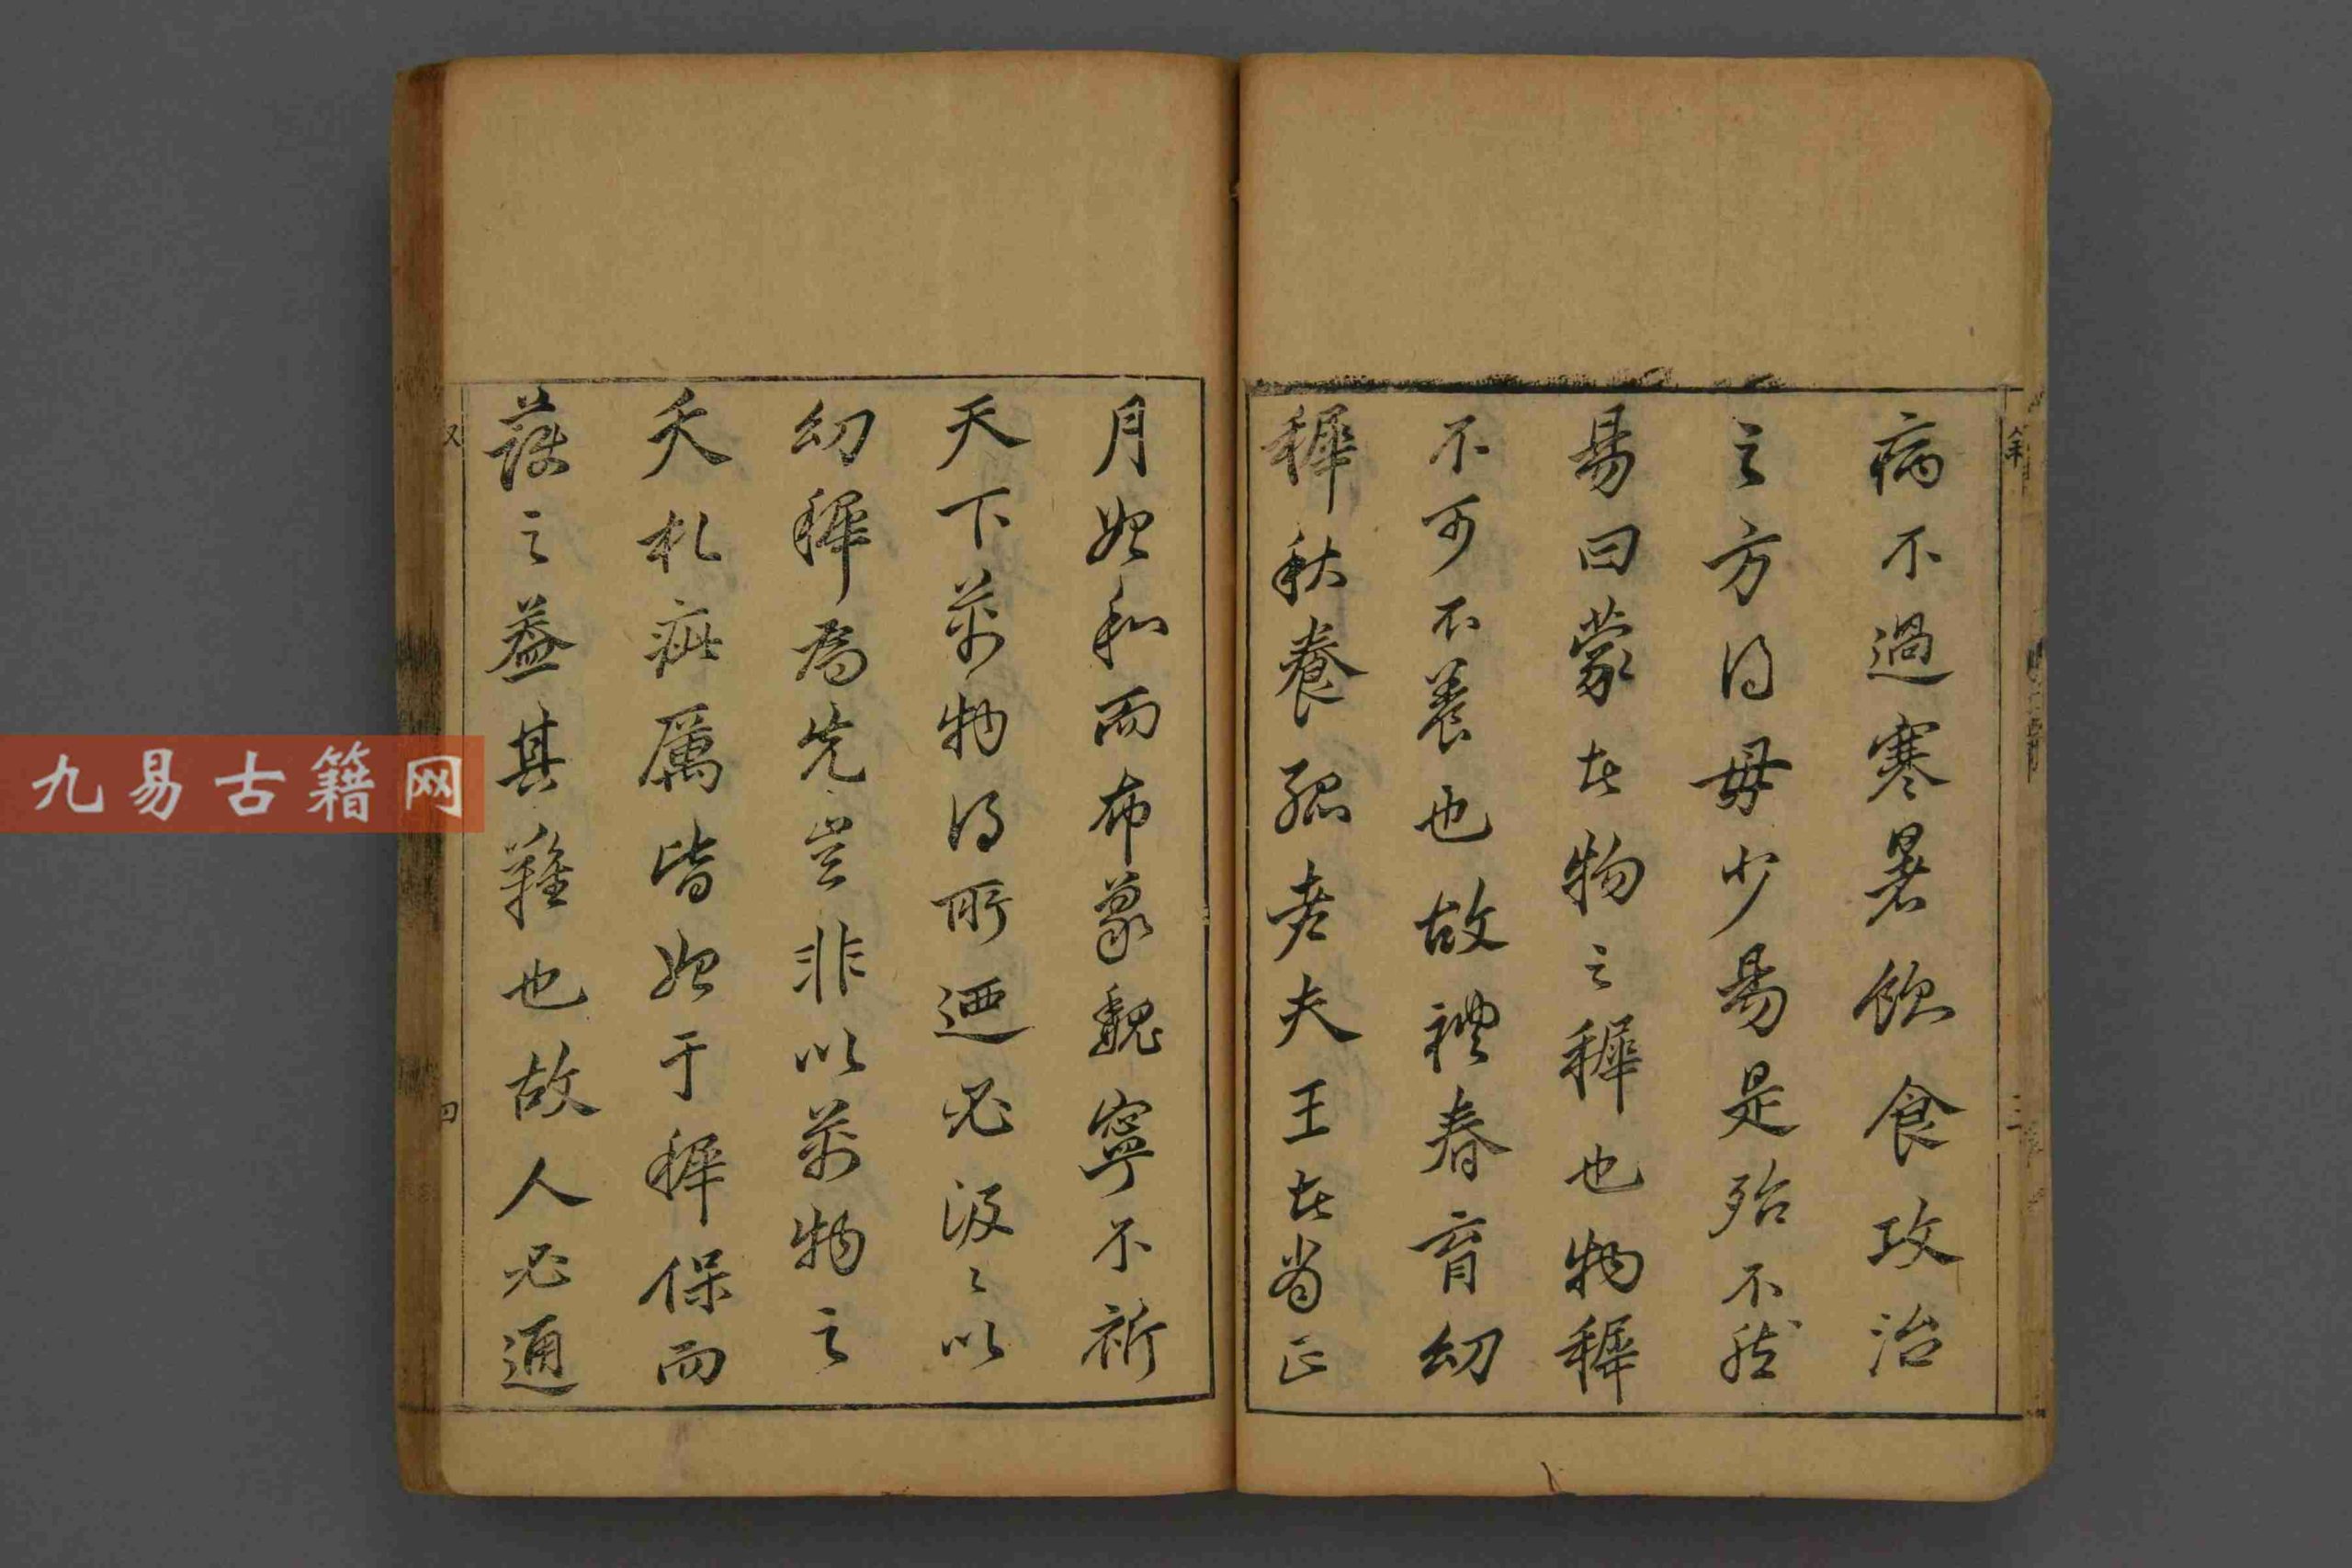 病不過寒暑飲食攻治
之方得毋少易是殆不然
易曰蒙者物之穉也物穉
不可不養也故禮春育幼
穉秋養孤老夫王者當正
月始和而布象魏寧不祈
天下萬物得所迺必汲〻以
幼穉爲先豈非以萬物之
夭札疵厲皆始于穉保而
護之葢其難也故人必通
九易古籍网